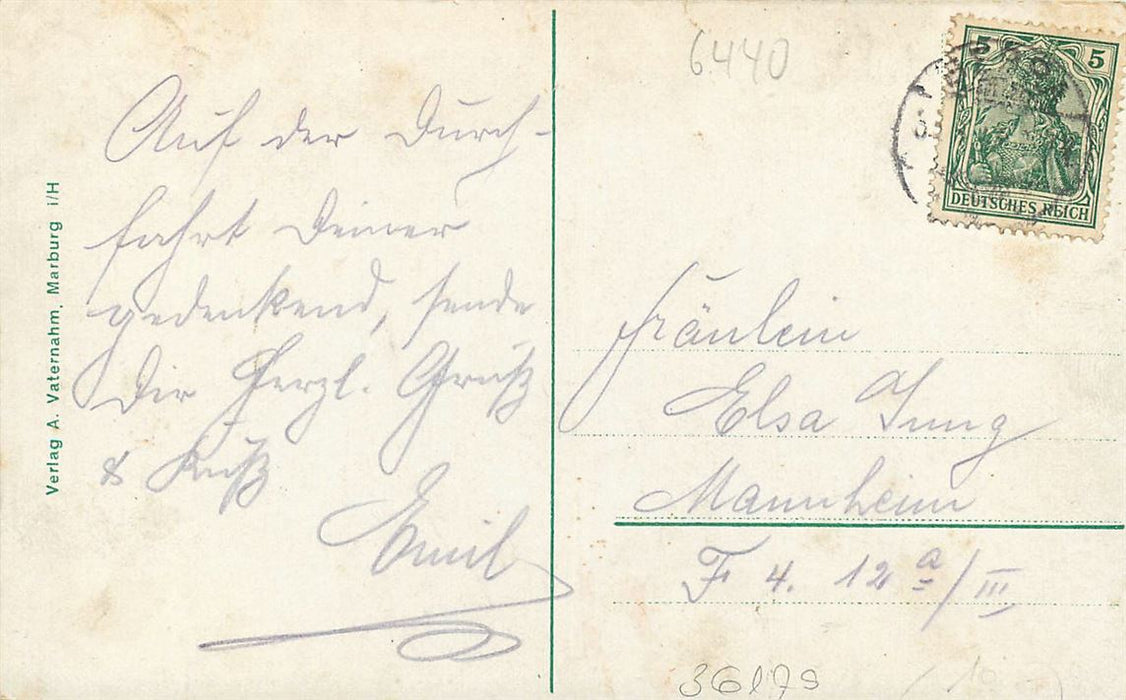 Auf der Durch-
fahrt Deiner
gedenkend, sende
Dir Herzl. Gruß
& Kuß
Emil
Verlag A. Vaternahm, Marburg i/H
6440
5 5
DEUTSCHES REICH
Fräulein
Elsa Jung
Mannheim
F 4. 12 a/III